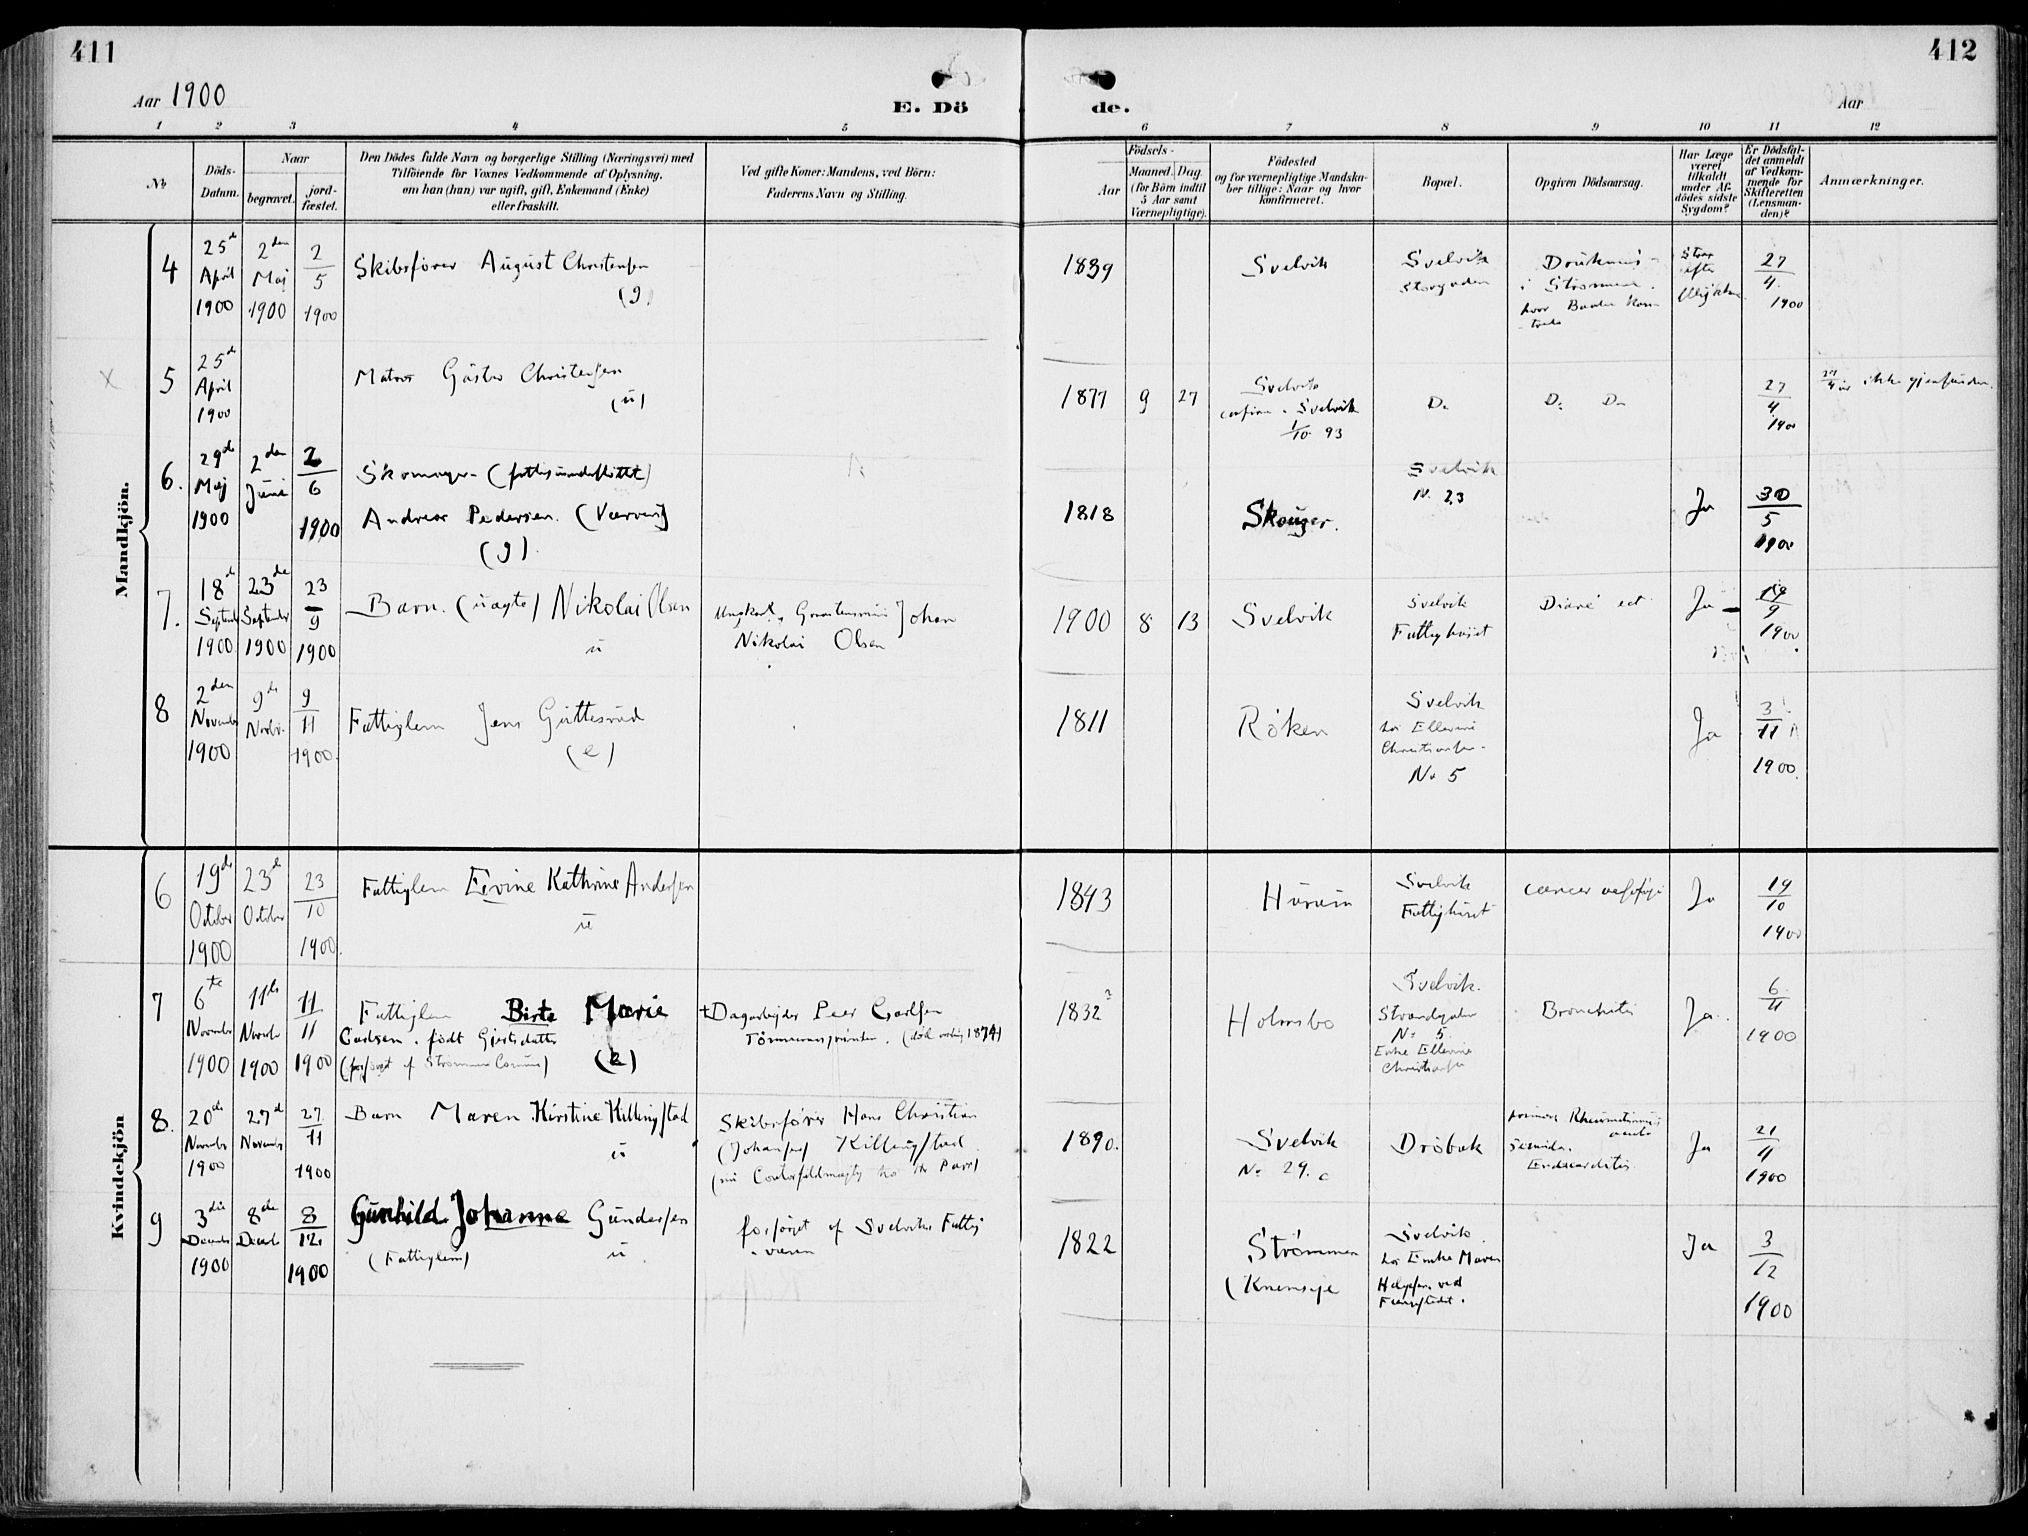 411
412
Aar 1900
E. Dö
de.
Aar
1 2 3 4 5 6 7 8 9 10 11 12
No
Döds-
Datum.
Naar
begravet.
jord-
fæstet.
Den Dödes fulde Navn og borgerlige Stilling (Næringsvei) med
Tilföiende for Voxnes Vedkommende af Oplysning,
om han (hun) var ugift, gift, Enkemand (Enke)
eller fraskilt.
Ved gifte Koner: Mandens, ved Börn:
Faderens Navn og Stilling.
Födsels-
Aar
Maaned. Dag.
(for Börn indtil
5 Aar samt
Værnepligtige).
Födested
og for værnepligtige Mandska-
ber tillige: Naar og hvor
konfirmeret.
Bopæl.
Opgiven Dödsaarsag.
Har Læge
været
tilkaldt
under Af-
dödes sidste
Sygdom?
Er Dödsfal-
det anmeldt
af Vedkom-
mende for
Skifteretten
(Lensman-
den)?
Anmærkninger.
Mandkjön.
4
25de April 1900
2den Maj 1900
2/5 1900
Skibsfører August Christensen
(g)
1839
Svelvik
Svelvik
Storgaden
i Strømmen
hvor Baaden
Strax
efter
27/4 1900
5
25de April 1900
Matros Gustav Christensen
(u)
1877 9 27
Svelvik
confirm. Svelvik
1/10 93
Do
Do Do
27/4 1900
ikke gjenfunden.
6.
29de Maj 1900
2den Juni
2/6 1900
Skomager
Andreas Pedersen
(g).
1818
Skouger.
Svelvik
No 23
Ja
30/5 1900
7.
18de September 1900
23de September 1900
23/9 1900
Barn. (uægte) Nikolai Olsen
u
Ungkarl, Johan
Nikolai Olsen
1900 8 13
Svelvik
Svelvik
Fattighuset
Ja
9
1900
8
2den November 1900
9de Novbr.
9/11 1900.
Fattiglem Jens Guttesrud
(e)
1811
Röken
Svelvik
hos Ellevine
Christiansen
No 5
Ja
3/11 1900.
Kvindekjön
6
19de October 1900
23de October
23/10 1900.
Fattiglem Kathrine Andersen
u
1843
Hurum
Svelvik
Fattighuset
cancer
Ja
19/10 1900
7
6te November 1900
11te Novembr 1900
11/11 1900
Fattiglem Birte Marie
Carlsen. født Gjertsdatter
(forsørget af Strømmens Comune)
(e)
+Dagarbejder Peer Carlsen
1832?
Holmsbo
Svelvik.
Strandgaden
No 5
Enke Ellevine
Christiansen
Bronchitis
Ja
6/11 1900
8.
20de November 1900
27de November
27/11 1900
Barn Maren Kirstine Killingstad
u
Skibsfører Hans Christian
(Johansen) Killingstad
1890.
Svelvik
No 29. c
Dröbak
Rheumatismus
Endocarditis
Ja
21/11 1900
9
3die Decembr 1900
8de Decembr
8/12 1900
Gunhild Johanne Gundersen
(Fattiglem)
u
forsørget af Svelviks Fattig
-væsen
1822
Strømmen
Svelvik
hos Enke Maren
Helgesen ved
Ja
3/12 1900